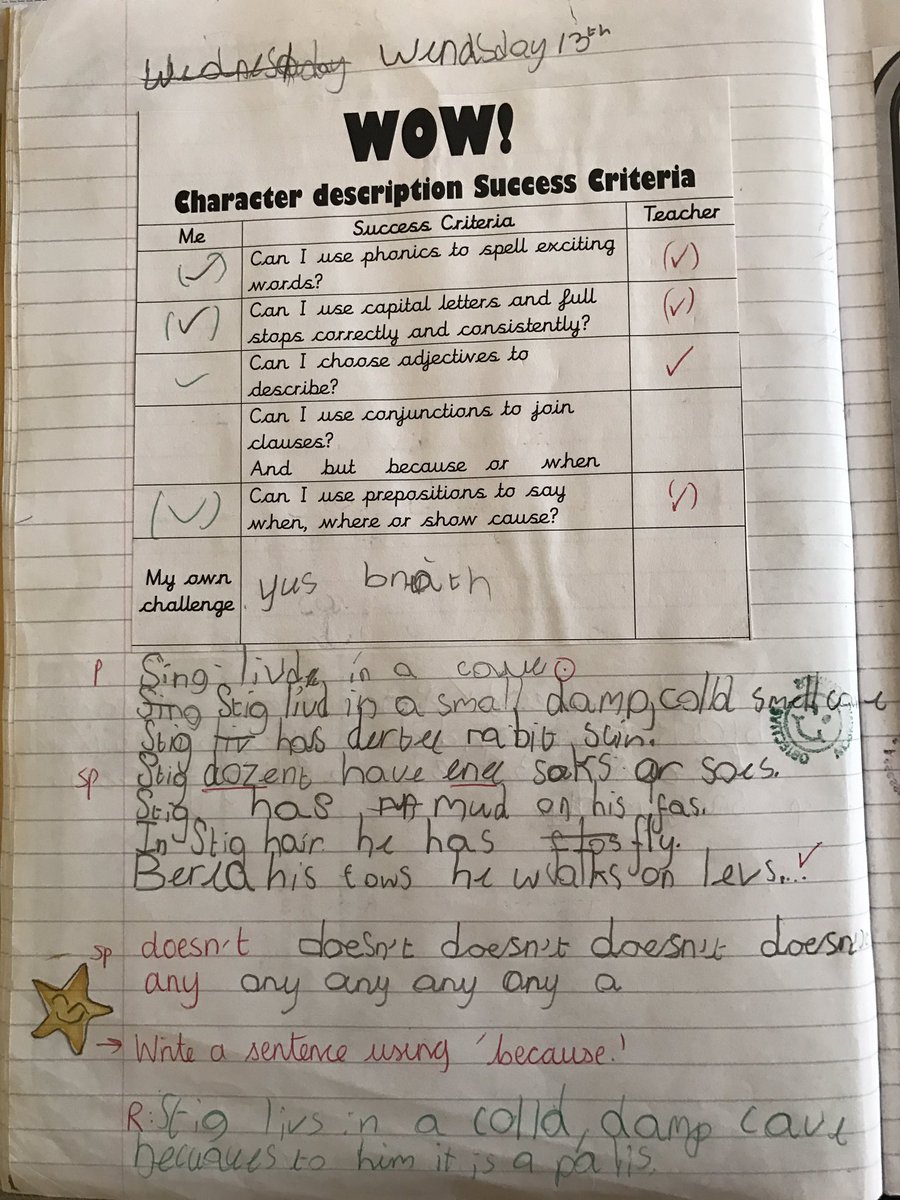 Wednesday Wendsday 13th
WOW!
Character description Success Criteria
Me Success Criteria Teacher
Can I use phonics to spell exciting
words?
Can I use capital letters and full
stops correctly and consistently?
Can I choose adjectives to
describe?
Can I use conjunctions to join
clauses?
And but because or when
Can I use prepositions to say
when, where or show cause?
My own
challenge
yus
p Sing livd in a cave.
Sing Stig livd in a small damp, cold smell cave
Stig has dertee rabit scin.
sp Stig dozent have enee soks or soes.
Stig has mud on his fas.
In Stig hair he has fly.
his tows he walks on levs...
sp doesn't doesn't doesn't doesn't doesn
any any any any any a
→ Write a sentence using 'because.'
R: Stig livs in a colld, damp cave
becuaes to him it is a palis.